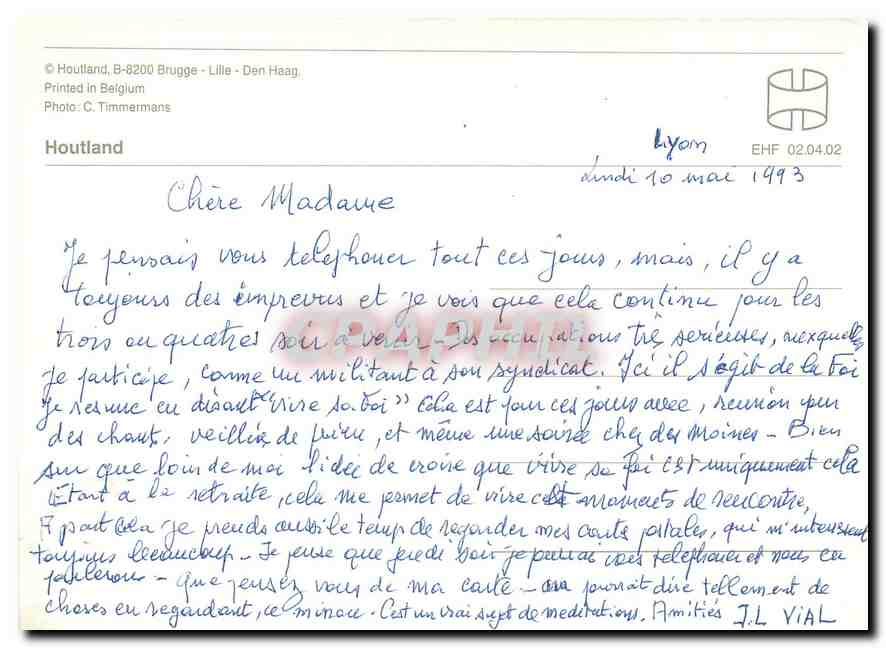 © Houtland, B-8200 Brugge - Lille - Den Haag.
Printed in Belgium
Photo: C. Timmermans
Houtland
EHF 02.04.02
Lyon
Lundi 10 mai 1993
Chère Madame
Je pensais vous telephoner tout ces jours, mais, il y a
toujours des imprevus et je vois que cela continu pour les
trois ou quatres soir à venir - Des occupations très serieuses, auxquelles
je participe, comme un militant à son syndicat. Ici il s'agit de la Foi
Je resume en disant "vivre sa Foi" Cela est pour ces jours avec, reunion pour
des chants, veillées de prière, et même une soirée chez des moines - Bien
sur que loin de moi l'idée de croire que vivre sa foi est uniquement cela
Etant à la retraite, cela me permet de vivre ces moments de rencontre,
A part cela je prends aussi le temps de regarder mes carte postales, qui m'interessent
toujours beaucoup - Je pense que jeudi soir je pourrai vous telephoner et nous en
parlerons - Que pensez vous de ma carte - on pourrait dire tellement de
choses en regardant, ce minou. C'est un vrai sujet de meditations. Amitiés J.L VIAL